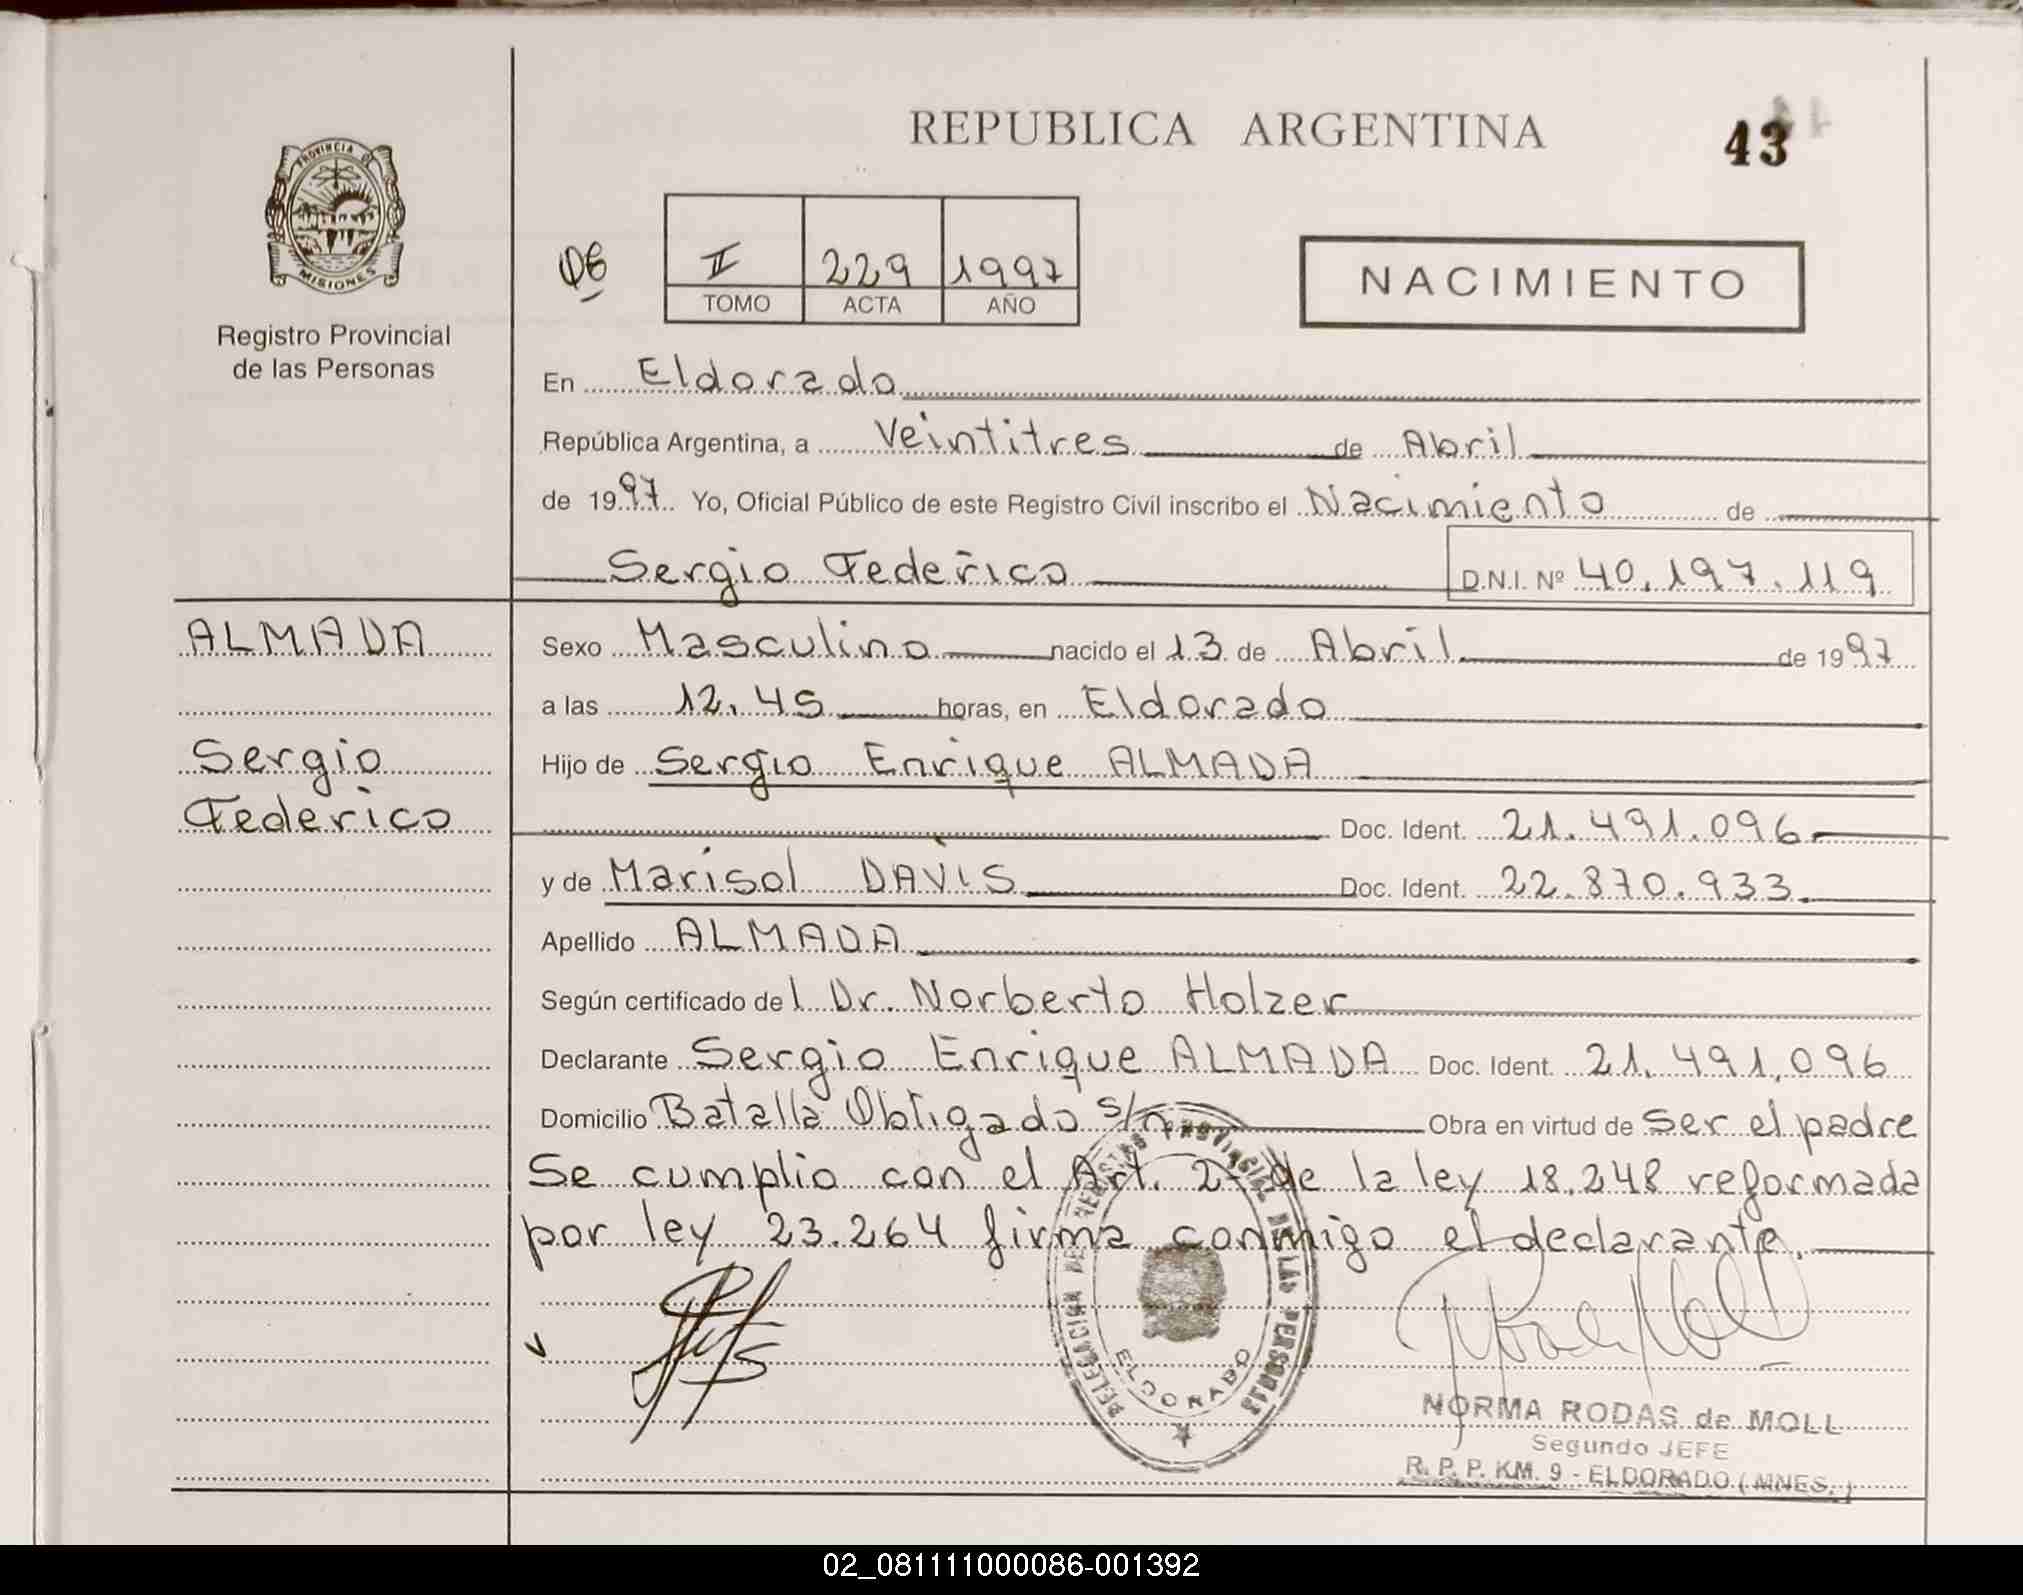 REPUBLICA ARGENTINA
43
PROVINCIA DE
MISIONES
Registro Provincial
de las Personas
II 229 1997
TOMO ACTA AÑO
NACIMIENTO
En Eldorado
República Argentina, a Veintitres de Abril
de 1997. Yo, Oficial Público de este Registro Civil inscribo el Nacimiento de
Sergio Federico D.N.I. Nº 40.197.119
ALMADA
Sergio
Federico
Sexo Masculino nacido el 13 de Abril de 1997
a las 12.45 horas, en Eldorado
Hijo de Sergio Enrique ALMADA
Doc. Ident. 21.491.096
y de Marisol DAVIS Doc. Ident. 22.870.933.
Apellido ALMADA
Según certificado del Dr. Norberto Holzer
Declarante Sergio Enrique ALMADA Doc. Ident. 21.491.096
Domicilio Batalla Obligado s/n Obra en virtud de ser el padre
Se cumplio con el Art. 2- de la ley 18.248 reformada
por ley 23.264 firma conmigo el declarante.
DELEGACION DEL REGISTRO PROVINCIAL DE LAS PERSONAS
ELDORADO
NORMA RODAS de MOLL
Segundo JEFE
R. P. P. KM. 9 - ELDORADO (MNES.)
02_081111000086-001392